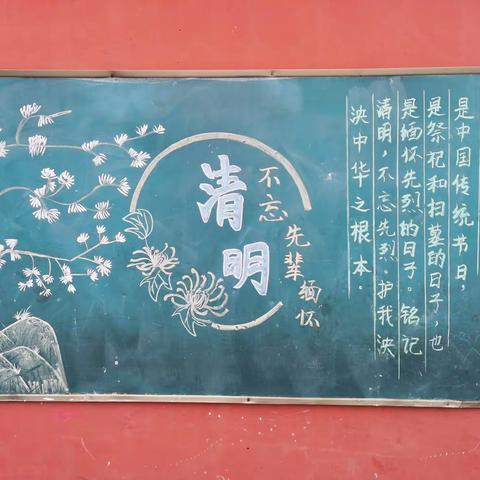 清明
不忘
先辈
缅怀
是中国传统节日，
是祭祀和扫墓的日子，也
是缅怀先烈的日子。铭记
清明，不忘先烈。护我泱
泱中华之根本。